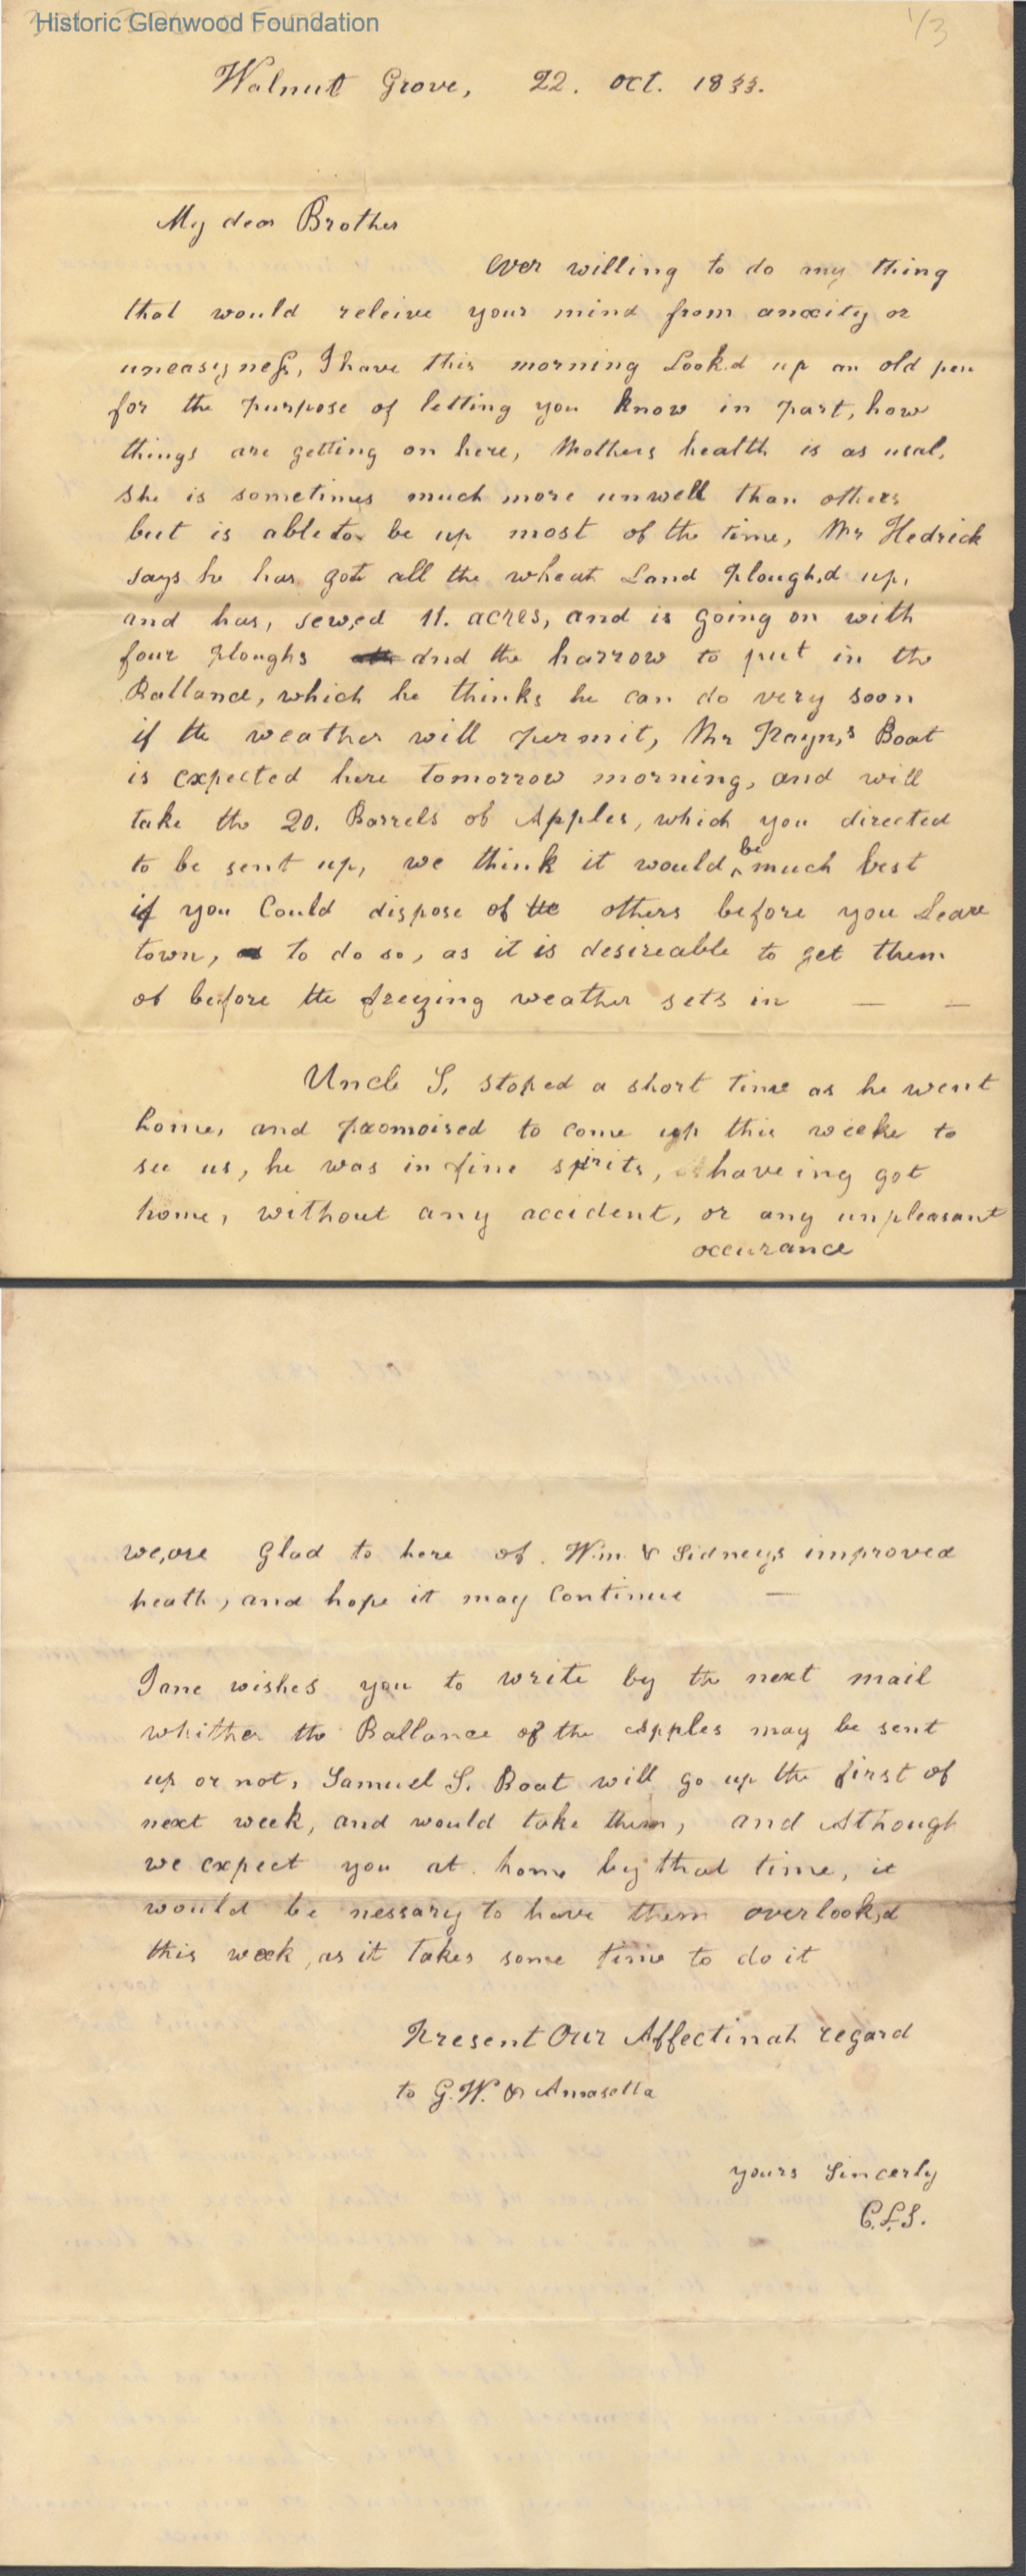 Historic Glenwood Foundation
1/3
Walnut Grove, 22. Oct. 1833.
My dear Brother
Ever willing to do any thing
that would releive your mind from anxcity or
uneasyness, I have this morning Look.d up an old pen
for the purpose of letting you know in part, how
things are getting on here, Mothers health is as usal,
She is sometimes much more unwell than others
but is able to be up most of the time, Mr Hedrick
says he has gott all the wheat Land Plough,d up,
and has, sew,ed 11. acres, and is going on with
four Ploughs and the harrow to put in the
Ballance, which he thinks he can do very soon
if the weather will permit, Mr Prayn,s Boat
is expected here tomorrow morning, and will
take the 20. Barrels of Apples, which you directed
to be sent up, we think it would be much best
if you Could dispose of the others before you Leave
town, to do so, as it is desireable to get them
of before the freezing weather sets in — —
Uncle S, stoped a short time as he went
home, and promoised to come up this weeke to
see us, he was in fine spirits, haveing got
home, without any accident, or any unpleasant
occurance
we,are Glad to here of. Wm. & Sidneys improved
heath, and hope it may Continue —
Jane wishes you to write by the next mail
whither the Ballance of the Apples may be sent
up or not, Samuel S. Boat will go up the first of
next week, and would take them, and Athough
we expect you at home by that time, it
would be nessary to have them overlook,d
this week, as it takes some time to do it
Present Our Affectinah regard
to G.W. & Amasetta
yours Sincerly
C.L.S.